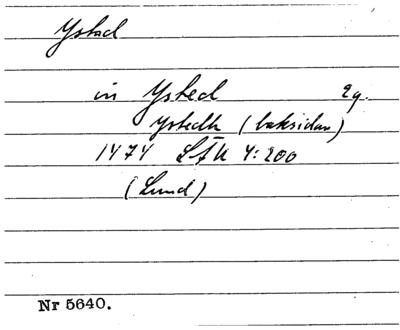 Ystad
in Ysted 2g.
Ystedh (baksidan)
1474 LÄU 4:200
(Lund)
Nr 5640.